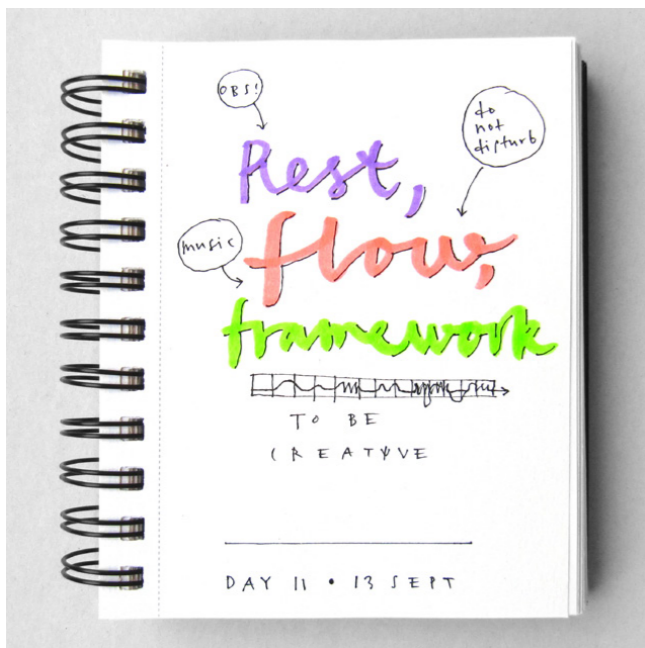 OBS!
do
not
disturb
Rest,
flow,
music
framework
TO BE
CREATIVE
DAY 11 • 13 SEPT